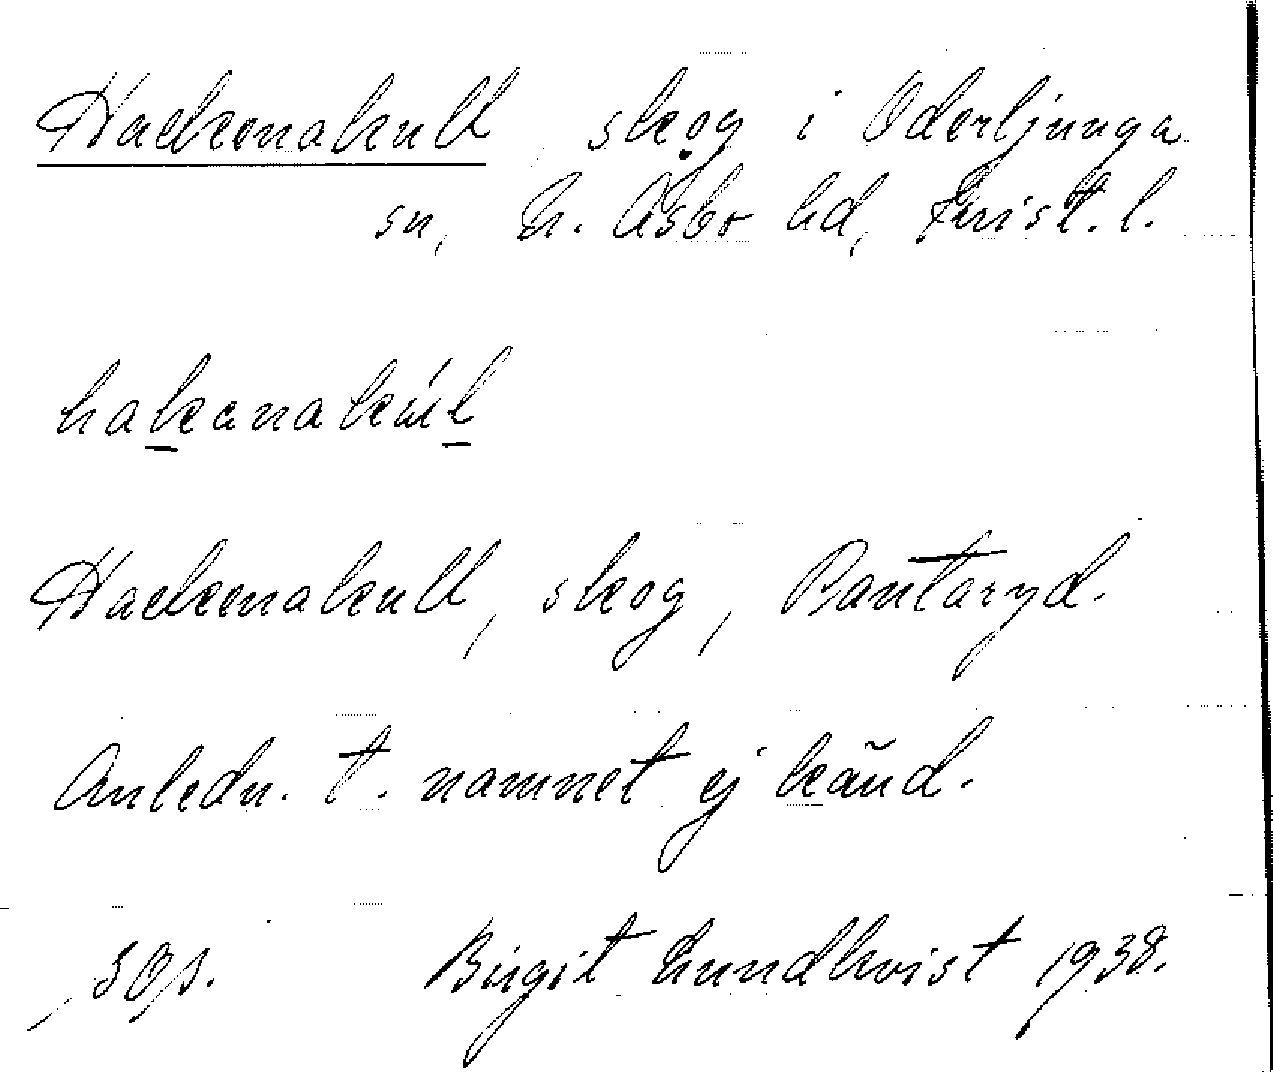 Hackenakull skog i Oderljunga
sn, N. Åsbo hd, Krist. l.
hakenakúl
Hackenakull, skog, Bantaryd.
Anledn. t. namnet ej känd.
Birgit Lundkvist 1938.